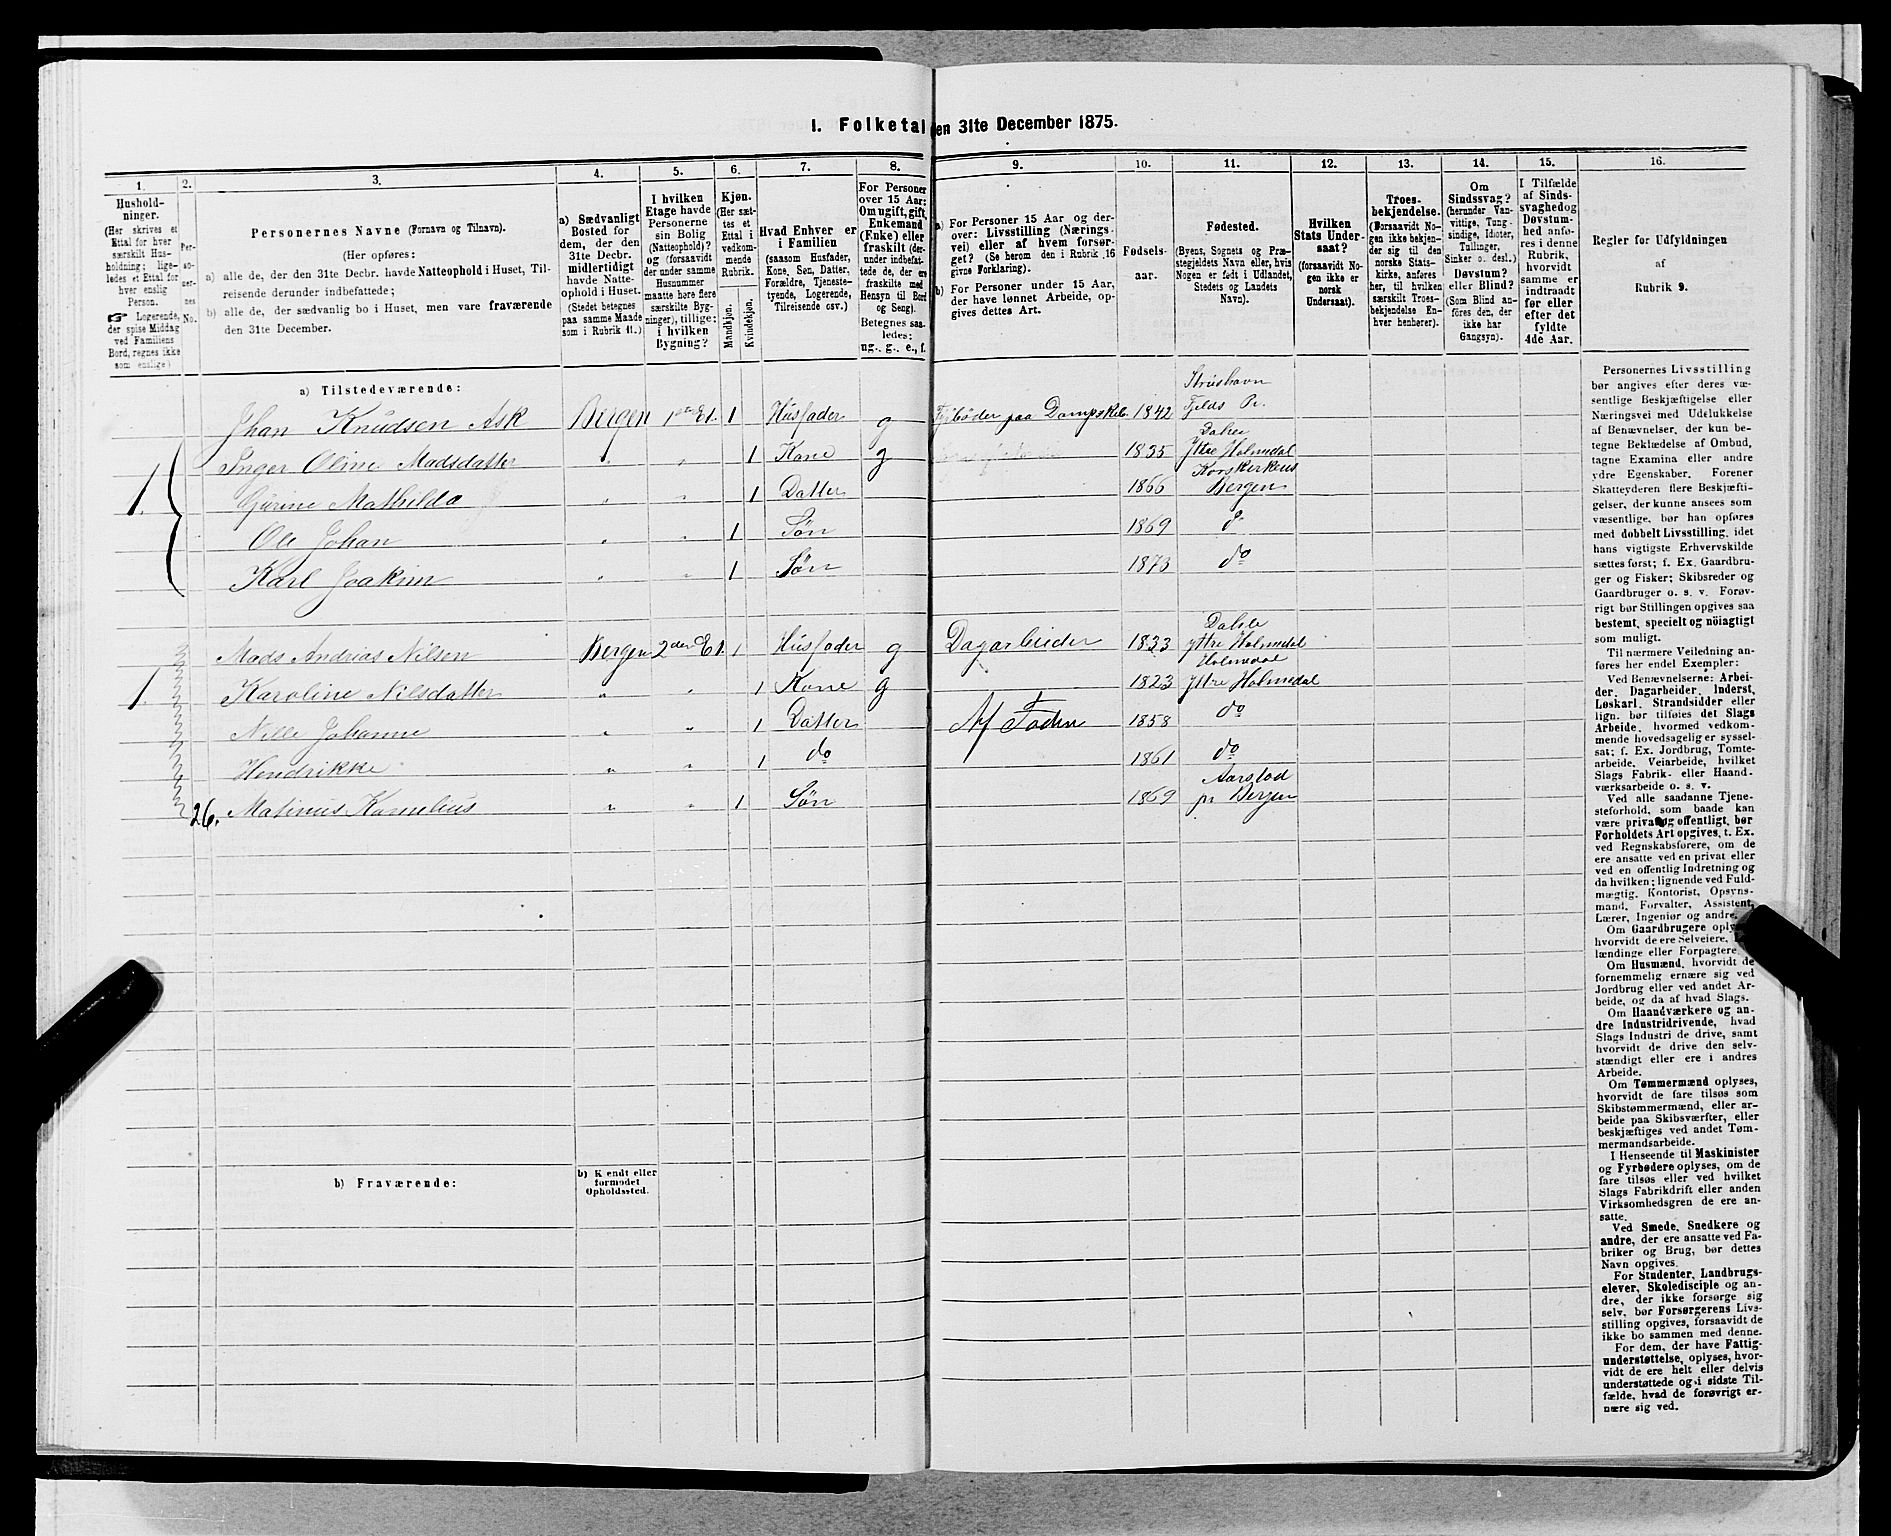 1. Folketal den 31te December 1875.
1.
Hushold-
ninger.
(Her skrives et
Ettal for hver
særskilt Hus-
holdning; lige-
ledes et Ettal for
hver enslig
Person.
☞ Logerende,
der spise Middag
ved Familiens
Bord, regnes ikke
som enslige)
2.
Per-
so-
ner-
nes
No.
3.
Personernes Navne (Fornavn og Tilnavn).
(Her opføres:
a) alle de, der den 31te Decbr. havde Natteophold i Huset, Til-
reisende derunder indbefattede;
b) alle de, der sædvanlig bo i Huset, men vare fraværende
den 31te December.
4.
a) Sædvanligt
Bosted for
dem, der den
31te Decbr.
midlertidigt
havde Natte-
ophold i Huset.
(Stedet betegnes
paa samme Maade
som i Rubrik 11.)
5.
I hvilken
Etage havde
Personerne
sin Bolig
(Natteophold)?
og (forsaavidt
der under samme
Husnummer
maatte høre flere
særskilte Byg-
ninger), tillige:
i hvilken
Bygning?
6.
Kjøn.
(Her sæt-
tes et
Ettal i
vedkom-
mende
Rubrik.
Mandkjøn.
Kvindekjøn.
7.
Hvad Enhver er
i Familien
(saasom Husfader,
Kone, Søn, Datter,
Forældre, Tjeneste-
tyende, Logerende,
Tilreisende osv.)
8.
For Personer
over 15 Aar:
Om ugift, gift,
Enkemand
(Enke) eller
fraskilt (der-
under indbefat-
tede de, der ere
fraskilte med
Hensyn til Bord
og Seng).
Betegnes saa-
ledes:
ug., g., e., f.
9.
a) For Personer 15 Aar og der-
over: Livsstilling (Nærings-
vei) eller af hvem forsør-
get? (Se herom den i Rubrik 16
givne Forklaring).
b) For Personer under 15 Aar,
der have lønnet Arbeide, op-
gives dettes Art.
10.
Fødsels-
aar.
11.
Fødested.
(Byens, Sognets og Præ-
stegjeldets Navn eller, hvis
Nogen er født i Udlandet,
Stedets og Landets
Navn).
12.
Hvilken
Stats Under-
saat?
(forsaavidt No-
gen ikke er
norsk
Undersaat).
13.
Troes-
bekjendelse.
(Forsaavidt No-
gen ikke bekjen-
der sig til den
norske Stats-
kirke, anføres
her, til hvilken
særskilt Troes-
bekjendelse En-
hver henhører).
14.
Om
Sindssvag?
(herunder Van-
vittige, Tung-
sindige, Idioter,
Tullinger,
Sinker o. desl.)
Døvstum?
eller Blind?
(Som Blind an-
føres den, der
ikke har
Gangsyn).
15.
I Tilfælde
af Sinds-
svaghed og
Døvstum-
hed anfø-
res i denne
Rubrik,
hvorvidt
samme er
indtraadt
før eller
efter det
fyldte
4de Aar.
16.
Regler for Udfyldningen
af
Rubrik 9.
a) Tilstedeværende:
Jhan Knudsen Ask Bergen 1ste Et. 1 Husfader g Fyrbøder paa Dampskib 1842 Strushavn Fjelds Pr.
1. Inger Oline Madsdatter " " 1 Kone g 1835 Dalen Yttre Holmedal
Gurine Mathilda " " 1 Datter 1866 Korskirkens Bergen
Ole Johan " " 1 Søn 1869 do
Karl Joakim " " 1 Søn 1873 do
Mads Andrias Nilsen Bergen 2den Et. 1 Husfader g Dagarbeider 1833 Dalsle Yttre Holmedal
1. Karoline Nilsdatter " " 1 Kone g 1823 Holmedal Yttre Holmedal
Nille Johanne " " 1 Datter Af Faderen 1858 do
Hendrikke " " 1 do 1861 do
26. Matinus Kornelius " " 1 Søn 1869 Aarstad pr Bergen
b) Fraværende:
b) Kjendt eller
formodet
Opholdssted.
Personernes Livsstilling
bør angives efter deres væ-
sentlige Beskjæftigelse eller
Næringsvei med Udelukkelse
af Benævnelser, der kun be-
tegne Beklædelse af Ombud,
tagne Examina eller andre
ydre Egenskaber. Forener
Skatteyderen flere Beskjæfti-
gelser, der kunne ansees som
væsentlige, bør han opføres
med dobbelt Livsstilling, idet
hans vigtigste Erhvervskilde
sættes først; f. Ex. Gaardbru-
ger og Fisker; Skibsreder og
Gaardbruger o. s. v. Forøv-
rigt bør Stillingen opgives saa
bestemt, specielt og nøiagtigt
som muligt.
Til nærmere Veiledning an-
føres her endel Exempler:
Ved Benævnelserne: Arbei-
der, Dagarbeider, Inderst,
Løskarl, Strandsidder eller
lign. bør tilføies det Slags
Arbeide, hvormed vedkom-
mende hovedsagelig er syssel-
sat; f. Ex. Jordbrug, Tomte-
arbeide, Veiarbeide, hvilket
Slags Fabrik- eller Haand-
værksarbeide o. s. v.
Ved alle saadanne Tjene-
steforhold, som baade kan
være privat og offentligt, bør
Forholdets Art opgives, t. Ex.
ved Regnskabsførere, om de
ere ansatte ved en privat eller
ved en offentlig Indretning og
da hvilken; lignende ved Fuld-
mægtig, Kontorist, Opsyns-
mand, Forvalter, Assistent,
Lærer, Ingeniør og andre.
Om Gaardbrugere oply-
hvorvidt de ere Selveiere,
lændinge eller Forpagtere.
Om Husmænd, hvorvidt de
fornemmelig ernære sig ved
Jordbrug eller ved andet Ar-
beide, og da af hvad Slags.
Om Haandværkere og an-
dre Industridrivende, hvad
Slags Industri de drive, samt
hvorvidt de drive den selv-
stændigt eller ere i andres
Arbeide.
Om Tømmermænd oplyses,
hvorvidt de fare tilsøs som
Skibstømmermænd, eller ar-
beide paa Skibsværfter, eller
beskjæftiges ved andet Tøm-
mermandsarbeide.
I Henseende til Maskinister
og Fyrbødere oplyses, om de
fare tilsøs eller ved hvilket
Slags Fabrikdrift eller anden
Virksomhedsgren de ere an-
satte.
Ved Smede, Snedkere og
andre, der ere ansatte ved Fa-
briker og Brug, bør dettes
Navn opgives.
For Studenter, Landbrugs-
elever, Skoledisciple og an-
dre, der ikke forsørge sig
selv, bør Forsørgerens Livs-
stilling opgives, forsaavidt de
ikke bo sammen med denne.
For dem, der have Fattig-
understøttelse, oplyses, hvor-
vidt de ere helt eller delvis
understøttede og i sidste Til-
fælde, hvad de forøvrigt er-
nære sig ved.